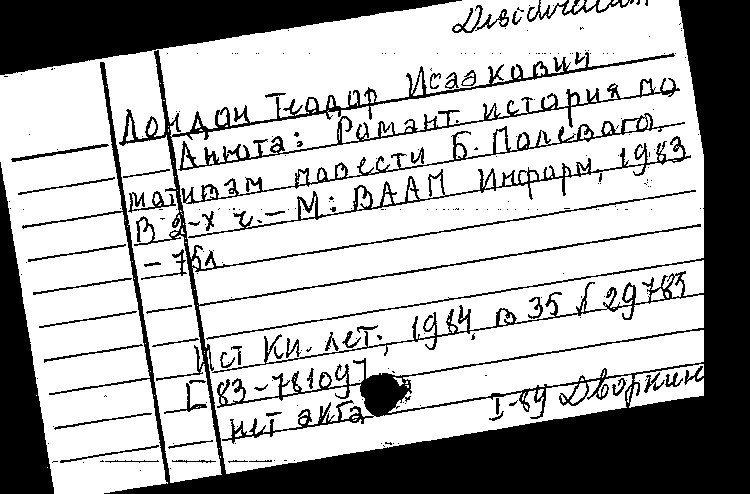 Лондон Теодор Исаакович
Анюта: Романт. история по
мотивам повести Б. Полевого.
В 2-х ч. – М: ВААП Информ, 1983
– 75л.
Ист Кн. лет., 1984, в 35 № 29785
[83-78109]
нет акта
I-89 Дворкин